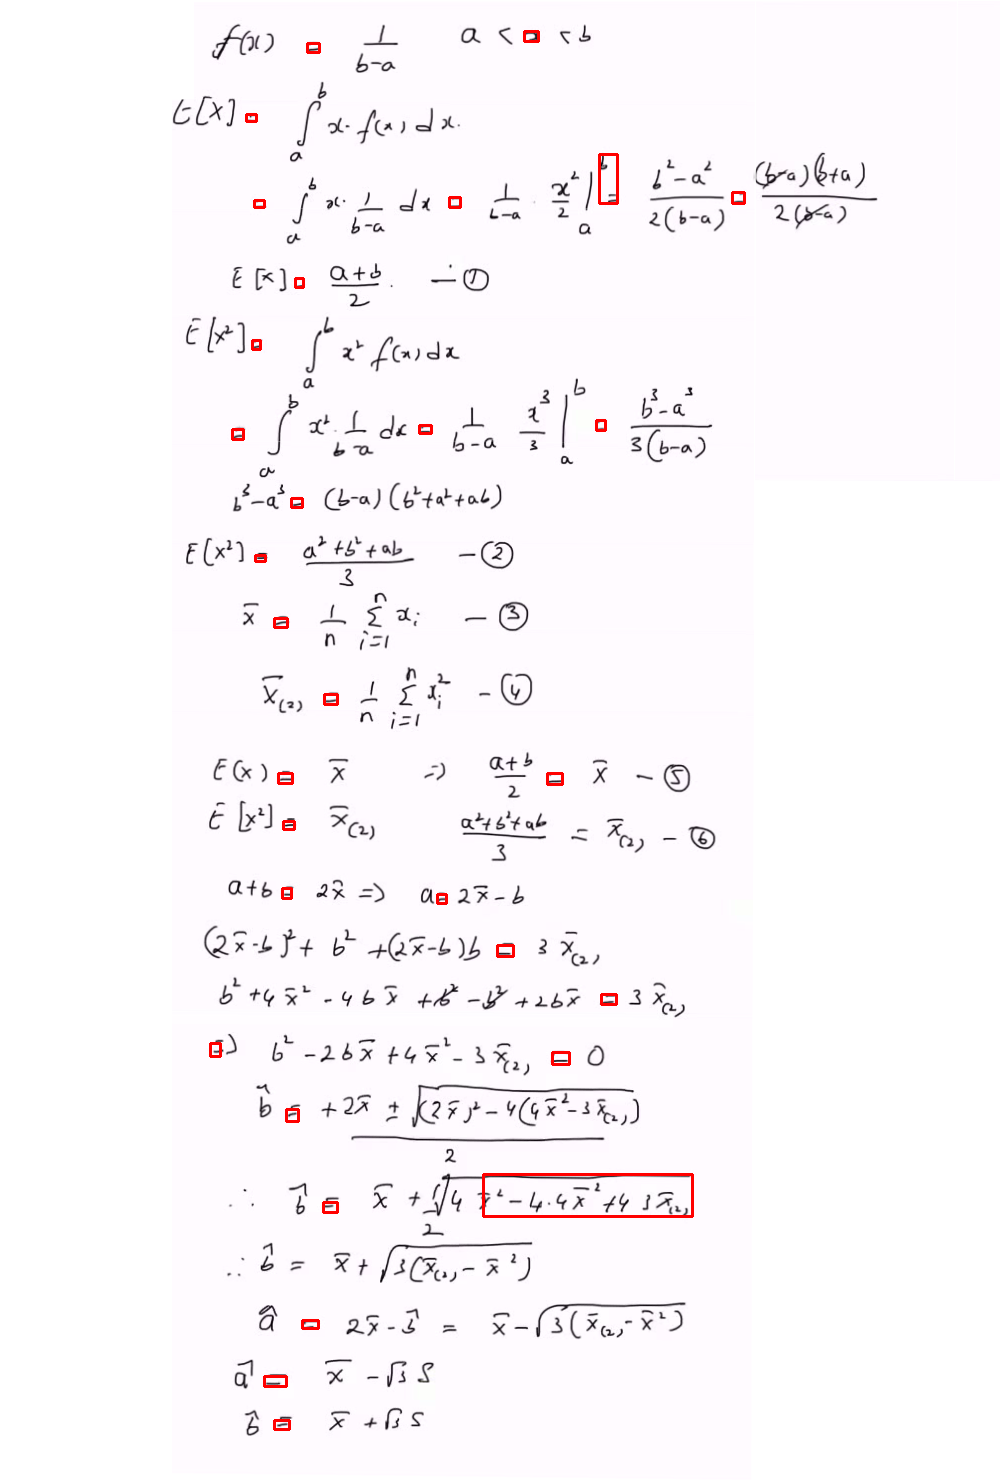 f(x) = 1/(b-a)   a < x < b
E[X] = ∫_a^b x · f(x) dx.
= ∫_a^b x · 1/(b-a) dx = 1/(b-a) · x²/2 |_a^b = (b²-a²)/(2(b-a)) = (b-a)(b+a)/(2(b-a))
E[x] = (a+b)/2 . — ①
E[x²] = ∫_a^b x² f(x) dx
= ∫_a^b x² · 1/(b-a) dx = 1/(b-a) x³/3 |_a^b = (b³-a³)/(3(b-a))
b³-a³ = (b-a)(b²+a²+ab)
E[X²] = (a²+b²+ab)/3 — ②
x̄ = 1/n Σ_{i=1}^n x_i — ③
x̄_(2) = 1/n Σ_{i=1}^n x_i² — ④
E(x) = x̄ ⇒ (a+b)/2 = x̄ — ⑤
E[x²] = x̄_(2)   (a²+b²+ab)/3 = x̄_(2) — ⑥
a+b = 2x̄ ⇒ a = 2x̄-b
(2x̄-b)² + b² + (2x̄-b)b = 3x̄_(2)
b² + 4x̄² - 4bx̄ + b² - b² + 2bx̄ = 3x̄_(2)
⇒ b² - 2bx̄ + 4x̄² - 3x̄_(2) = 0
b̂ = (+2x̄ ± √((2x̄)² - 4(4x̄² - 3x̄_(2))))/2
∴ b̂ = x̄ + √(4x̄² - 4·4x̄² + 4 3x̄_(2))/2
∴ b̂ = x̄ + √(3(x̄_(2) - x̄²))
â = 2x̄ - b̂ = x̄ - √(3(x̄_(2) - x̄²))
â = x̄ - √3 S
b̂ = x̄ + √3 S